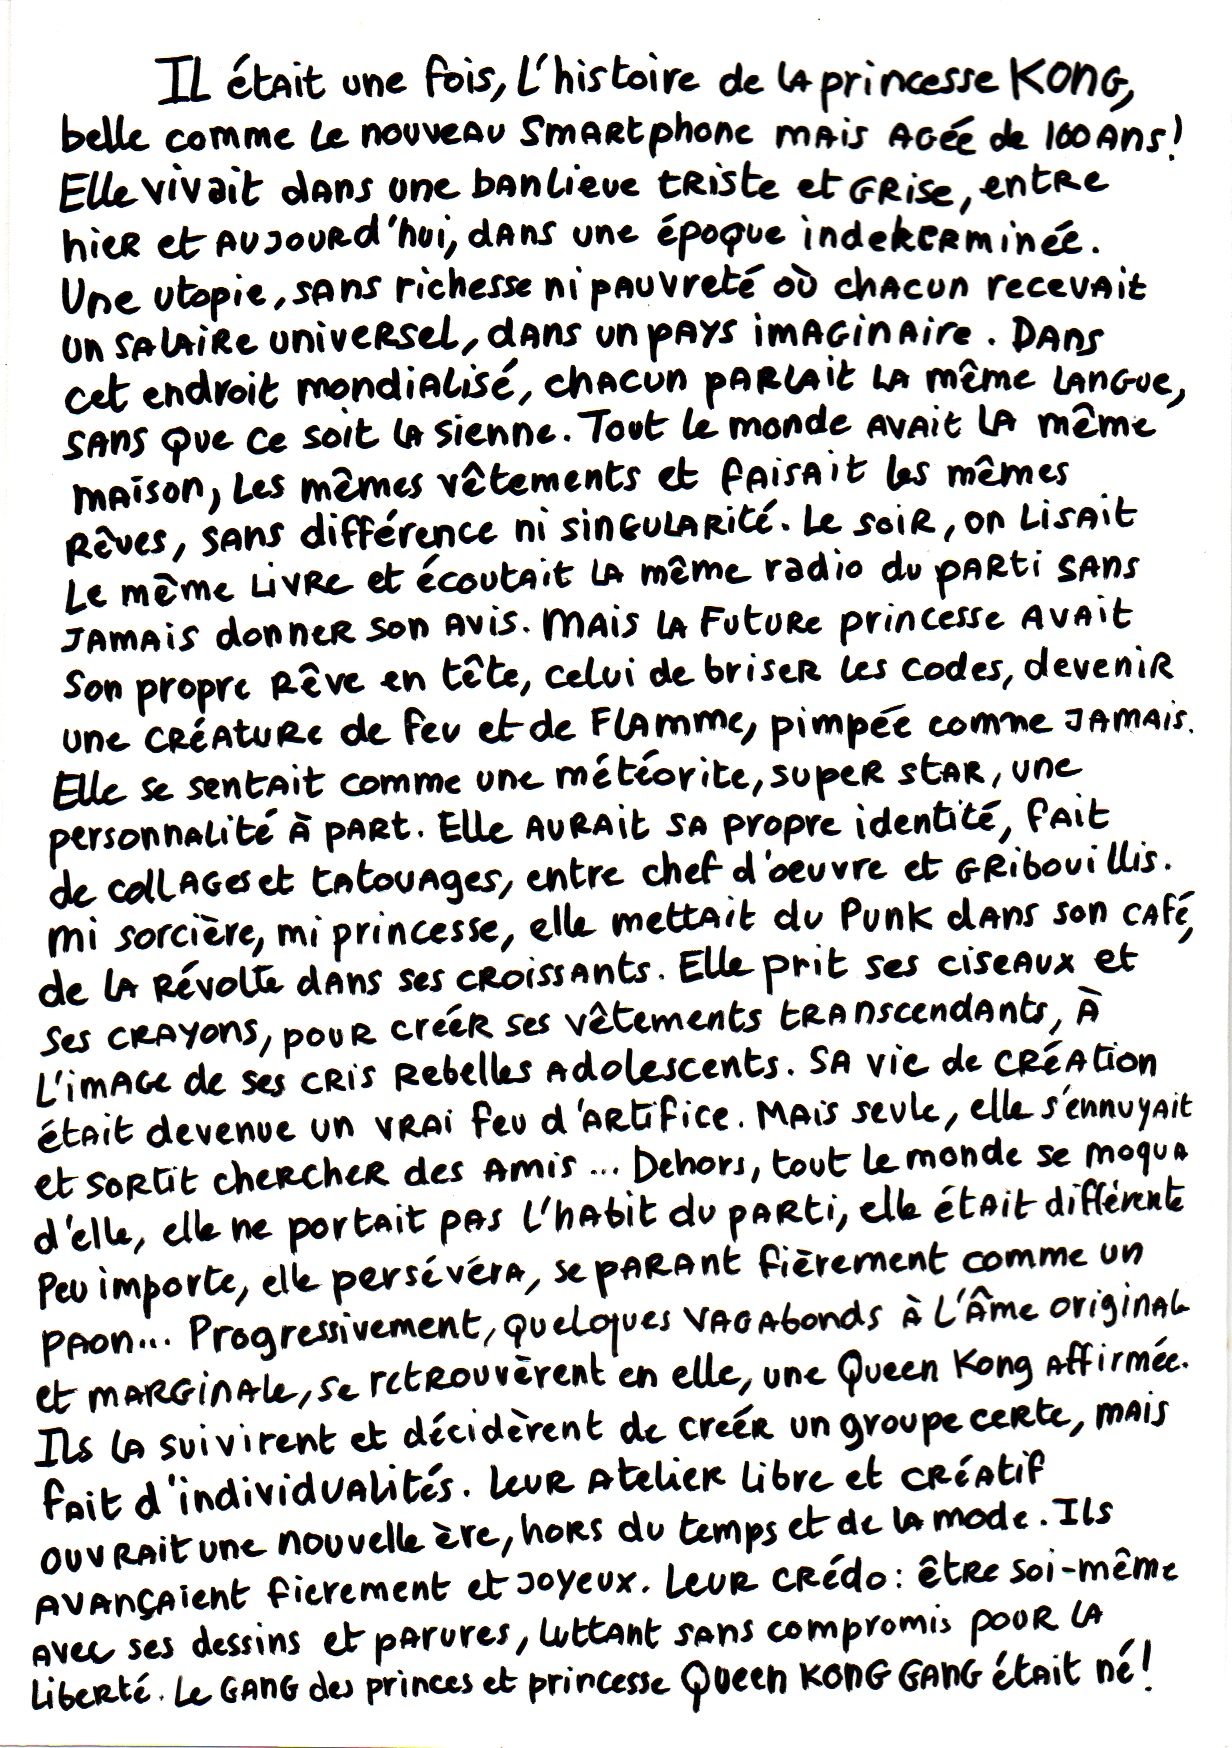 Il était une fois, l'histoire de la princesse KONG,
belle comme le nouveau smartphone mais agée de 100 ans!
Elle vivait dans une banlieue triste et grise, entre
hier et aujourd'hui, dans une époque indeterminée.
Une utopie, sans richesse ni pauvreté où chacun recevait
un salaire universel, dans un pays imaginaire. Dans
cet endroit mondialisé, chacun parlait la même langue,
sans que ce soit la sienne. Tout le monde avait la même
maison, les mêmes vêtements et faisait les mêmes
rêves, sans différence ni singularité. Le soir, on lisait
le même livre et écoutait la même radio du parti sans
jamais donner son avis. Mais la future princesse avait
son propre rêve en tête, celui de briser les codes, devenir
une créature de feu et de flamme, pimpée comme jamais.
Elle se sentait comme une météorite, super star, une
personnalité à part. Elle aurait sa propre identité, fait
de collages et tatouages, entre chef d'oeuvre et gribouillis.
mi sorcière, mi princesse, elle mettait du Punk dans son café,
de la révolte dans ses croissants. Elle prit ses ciseaux et
ses crayons, pour creér ses vêtements transcendants, à
l'image de ses cris rebelles adolescents. Sa vie de création
était devenue un vrai feu d'artifice. Mais seule, elle s'ennuyait
et sortit chercher des amis... Dehors, tout le monde se moqua
d'elle, elle ne portait pas l'habit du parti, elle était différente
Peu importe, elle persévéra, se parant fièrement comme un
paon... Progressivement, quelques vagabonds à l'âme original
et marginale, se retrouvèrent en elle, une Queen Kong affirmée.
Ils la suivirent et décidèrent de creér un groupe certe, mais
fait d'individualités. Leur atelier libre et créatif
ouvrait une nouvelle ère, hors du temps et de la mode. Ils
avançaient fierement et joyeux. Leur crédo: être soi-même
avec ses dessins et parures, luttant sans compromis pour la
liberté. Le gang des princes et princesse Queen KONG GANG était né!